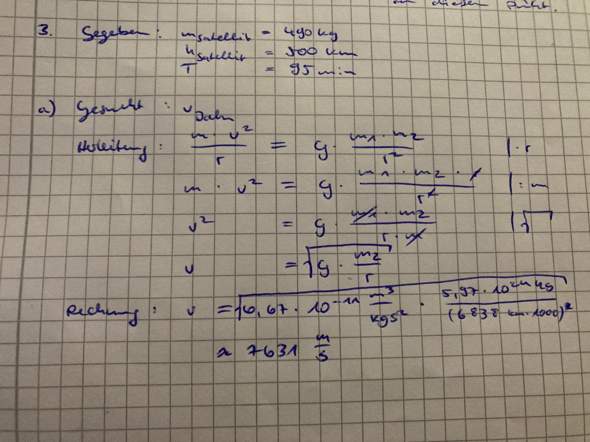 in diesem Punkt.
3. Gegeben: m Satellit = 490 kg
h Satellit = 500 km
T = 95 min
a) Gesucht: v Bahn
Herleitung: m · v² / r = G · m₁ · m₂ / r² | · r
m · v² = G · m₁ · m₂ · r / r² | : m
v² = G · m₁ · m₂ / r · m | √
v = √(G · m₂ / r)
Rechnung: v = √(6,67 · 10⁻¹¹ m³ / kg s² · 5,97 · 10²⁴ kg / (6838 km · 1000)²)
≈ 7631 m/s